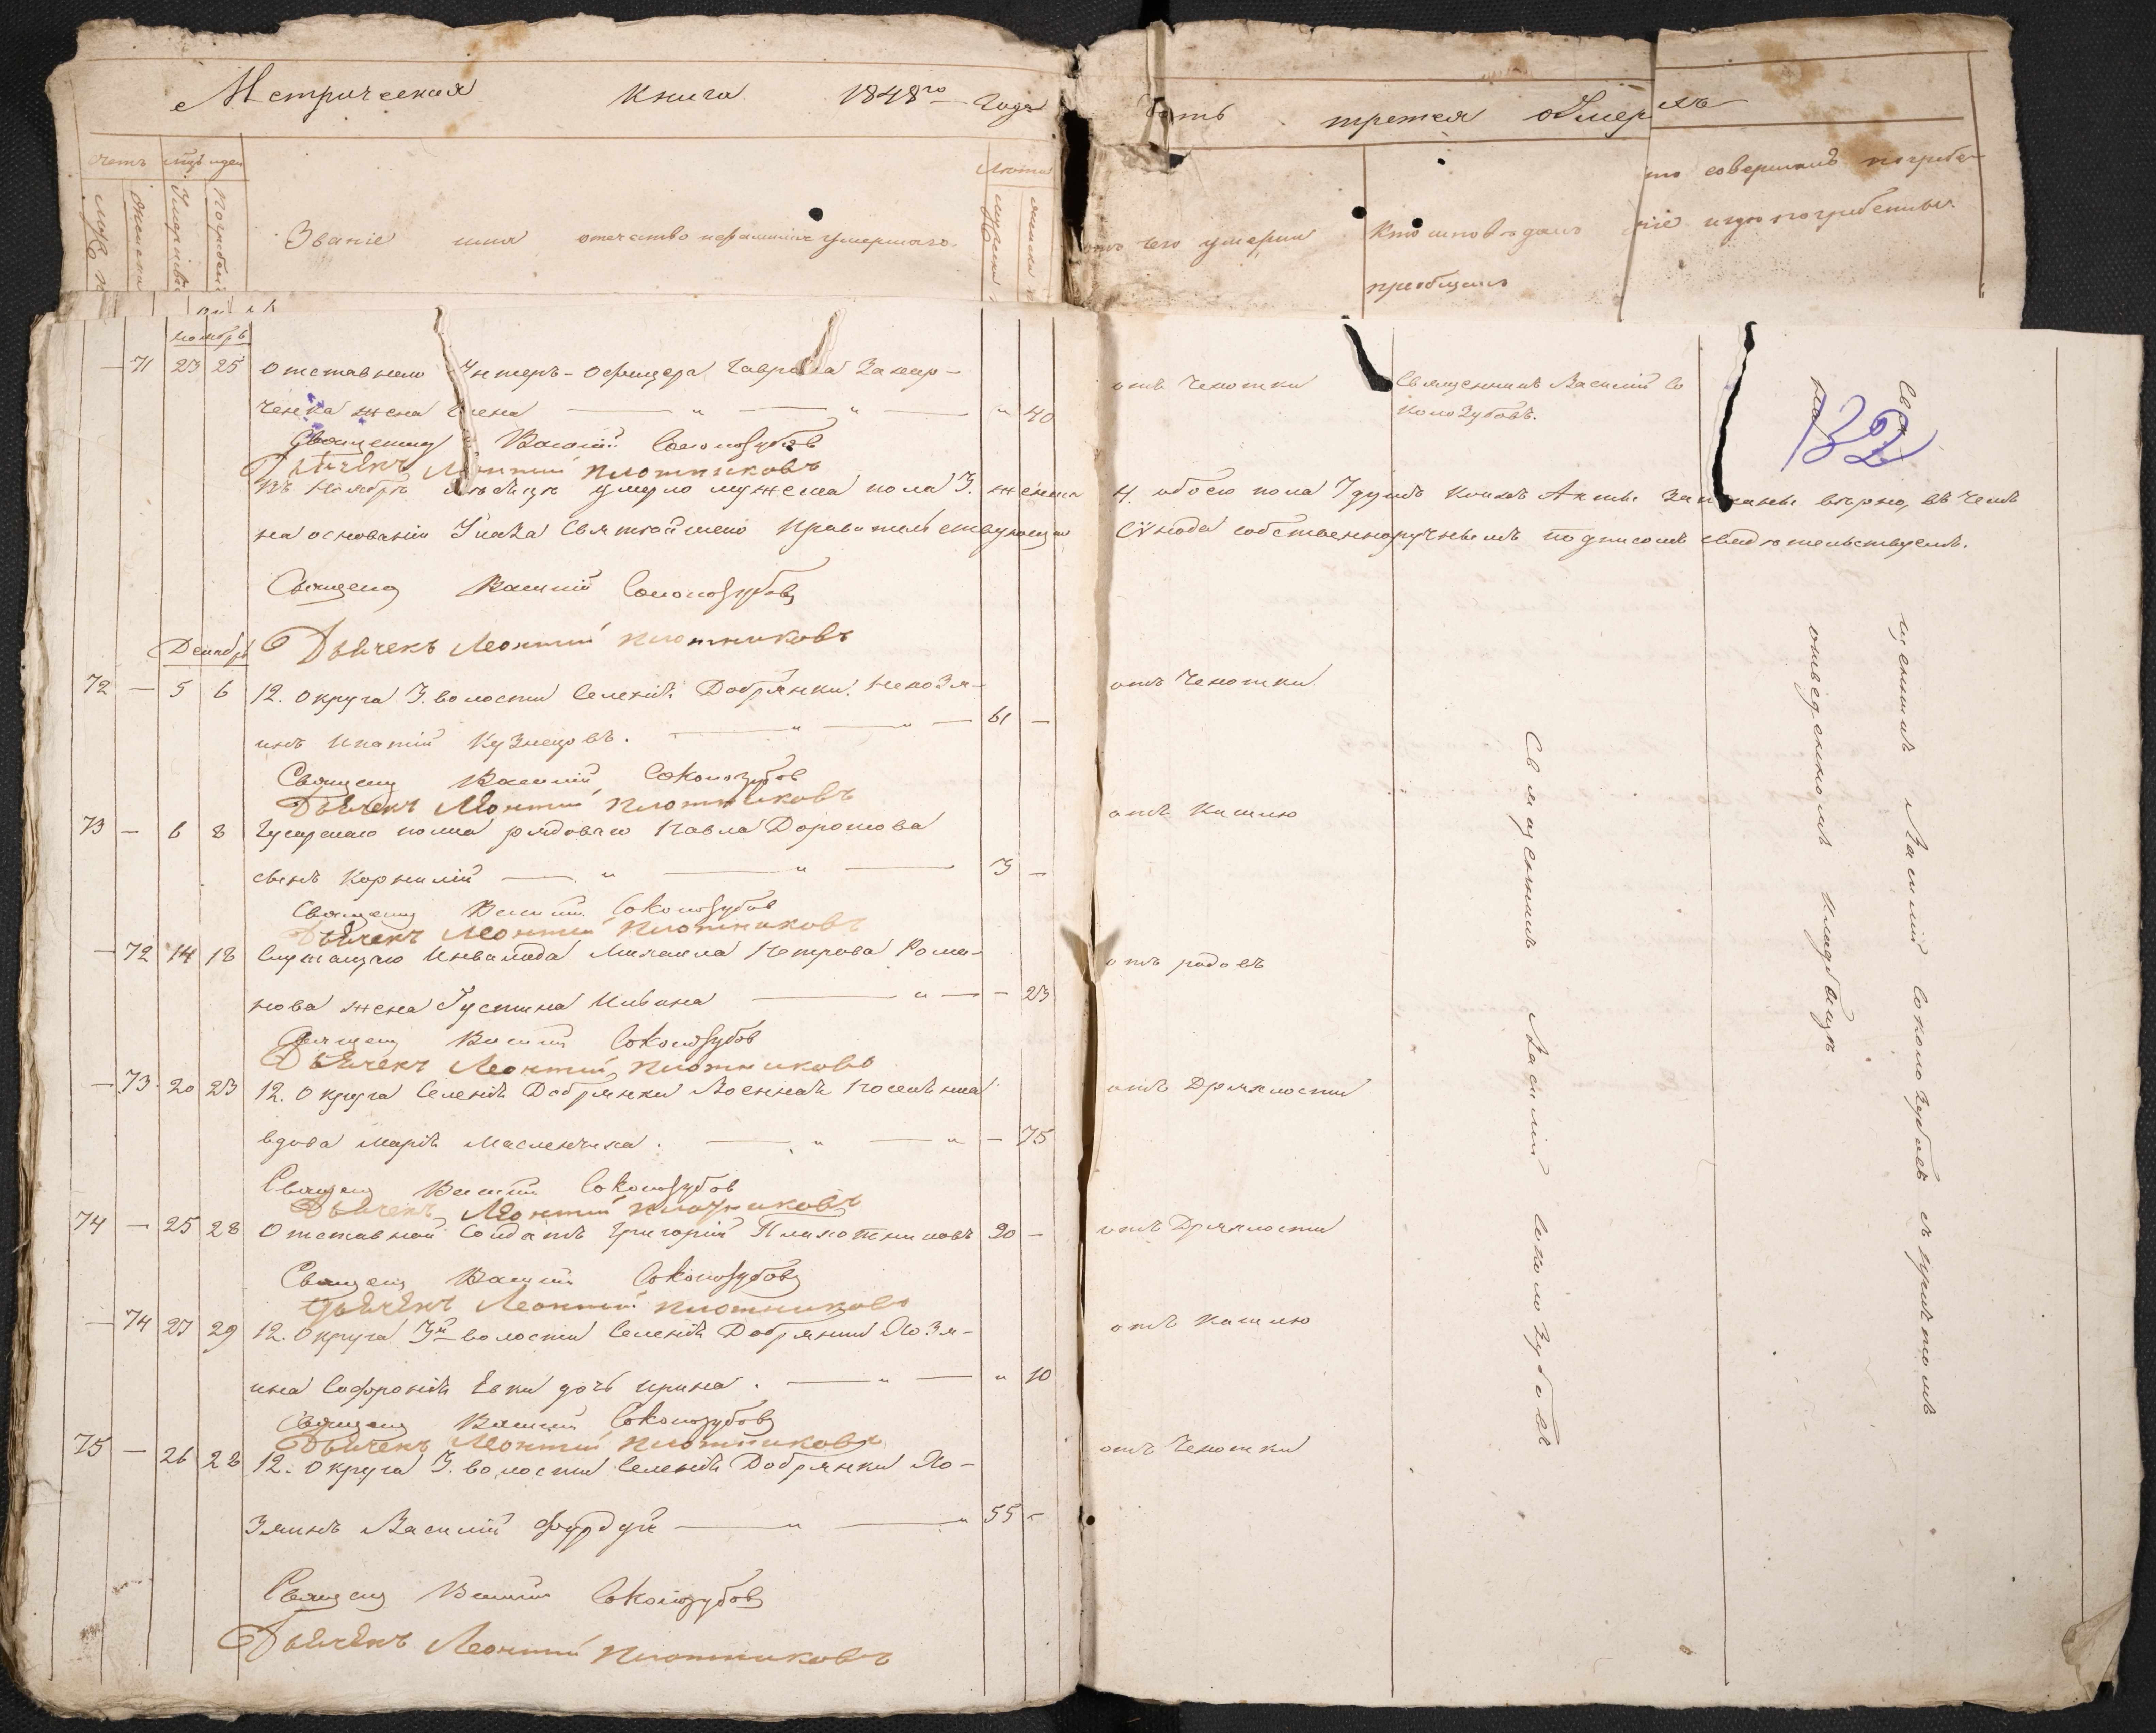 Метрическая книга 1848го года
Часть третея о Умерлъ
Счетъ
мць и ден
Мужеск
Женска
Умертвія
Погребені
Званіе имя отечество и фамилія умершаго.
Лета
мужеска
женска
отъ чего умерли
Кто исповедалъ
приобщалъ
кто совершалъ погребе-
ніе и где погребенны
ноябрь
— 71 23 25 Отставнаго Унтеръ-Офицера Гаврила
ченка жена Елена — " — " — " 40
отъ Чехотки
Священникъ Василій Со
колозубовъ.
132
Священну Василій Соколозубов
Дьячекъ Леонтий плотниковъ
Въ Ноябре месяце умерло мужеска пола 3. женска 4. обоего пола 7 душъ коихъ Акты записаны верно, въ чемъ
на основаніи Указа Святейшего Правительствующаго Сѵнода собственноручнымъ подписомъ свидетельствуемъ.
Священ Василій Соколозубов
Дьячекъ Леонтий плотниковъ
Декабрь
72 — 5 6 12. Округа 3. волости Селенія Добрянки. Нехозя-
инъ Ипатій Кузнецовъ. — " — " — 61 —
отъ Чехотки
Священ Василій Соколозубов
Дьячекъ Леонтий плотниковъ
73 — 6 8 Гусарскаго полка рядоваго Павла Дорошова
сынъ Корнилій — " — " — 3 —
отъ Кашлю
Священ Василій Соколозубов
Дьячекъ Леонтий плотниковъ
— 72 14 18 Служащаго Инвалида Михаила Петрова Рома-
нова жена Устина Ильина — " — — 23
отъ родовъ
Священ Василій Соколозубов
Дьячекъ Леонтий плотниковъ
— 73. 20 23 12. Округа Селенія Добрянки Военнаго поселянина
вдова Марія Масленчиха. — " — " — 75
отъ Дряхлости
Священ Василій Соколозубов
Дьячекъ Леонтий плотниковъ
74 — 25 28 Отставной Солдатъ Григорій 90 —
отъ Дряхлости
Священ Василій Соколозубов
Дьячекъ Леонтий плотниковъ
— 74 27 29 12. Округа 3й волости Селенія Добрянки Хозя-
ина Софронія Евки дочь Ирина. — " — " 10
отъ Кашлю
Священ Василій Соколозубов
Дьячекъ Леонтий плотниковъ
75 — 26 28 12. Округа 3. волости Селенія Добрянки Хо-
зяинъ Василій Фурдуй — " — " 55 —
отъ Чехотки
Священ Василій Соколозубов
Дьячекъ Леонтий плотниковъ
Священникъ Василій Соколозубовъ
Священникъ Василій Соколозубовъ съ причтомъ
на отведенномъ кладбище